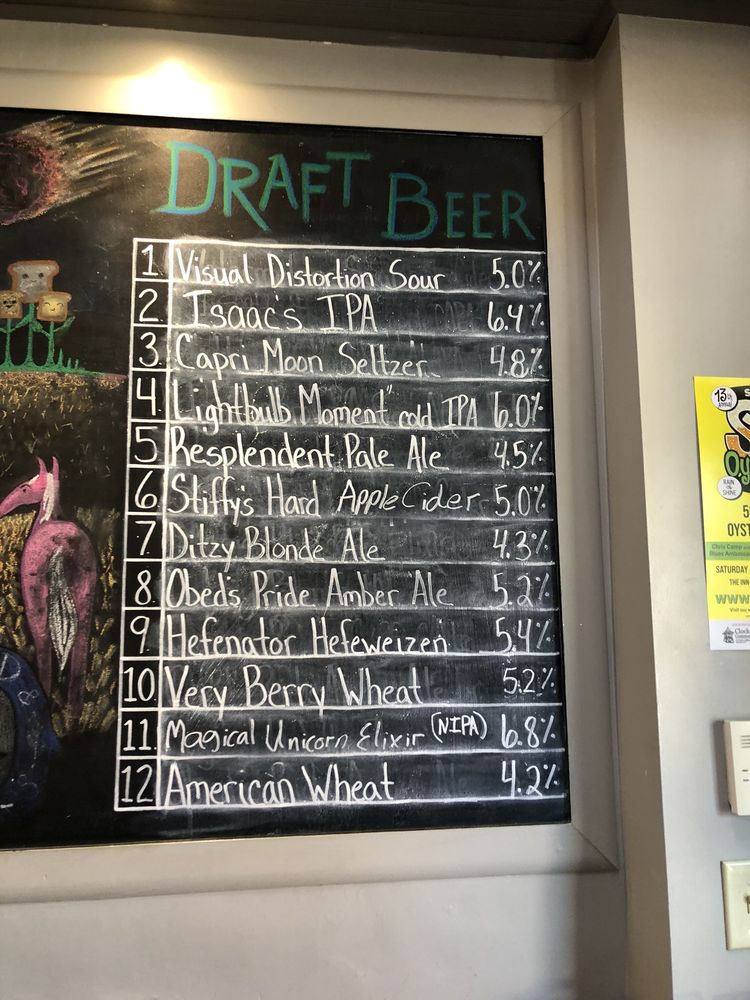 DRAFT BEER
1 Visual Distortion Sour 5.0%
2. Isaac's IPA 6.4%
3. Capri Moon Seltzer 4.8%
4. Lightbulb Moment" cold IPA 6.0%
5 Resplendent Pale Ale 4.5%
6. Stiffy's Hard Apple Cider 5.0%
7. Ditzy Blonde Ale 4.3%
8. Obed's Pride Amber Ale 5.2%
9. Hefenator Hefeweizen 5.4%
10. Very Berry Wheat 5.2%
11. Magical Unicorn Elixir (NIPA) 6.8%
12 American Wheat 4.2%
13th
Annual
RAIN
OR
SHINE
OYST
Chris Camp
Blues Ambassa
SATURDAY
THE INN
WWW
Visit our
Clock